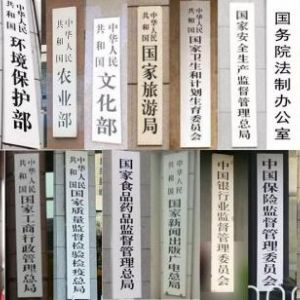 中华人民
共和国
环境保护部
中华人民
共和国
农业部
中华人民
共和国
文化部
中华人民
共和国
国家旅游局
中华人民
共和国
国家卫生和计划生育委员会
国家安全生产监督管理总局
国务院法制办公室
中华人民
共和国
国家工商行政管理总局
中华人民
共和国
国家质量监督检验检疫总局
国家食品药品监督管理总局
中华人民
共和国
国家新闻出版广电总局
中国银行业监督管理委员会
中国保险监督管理委员会